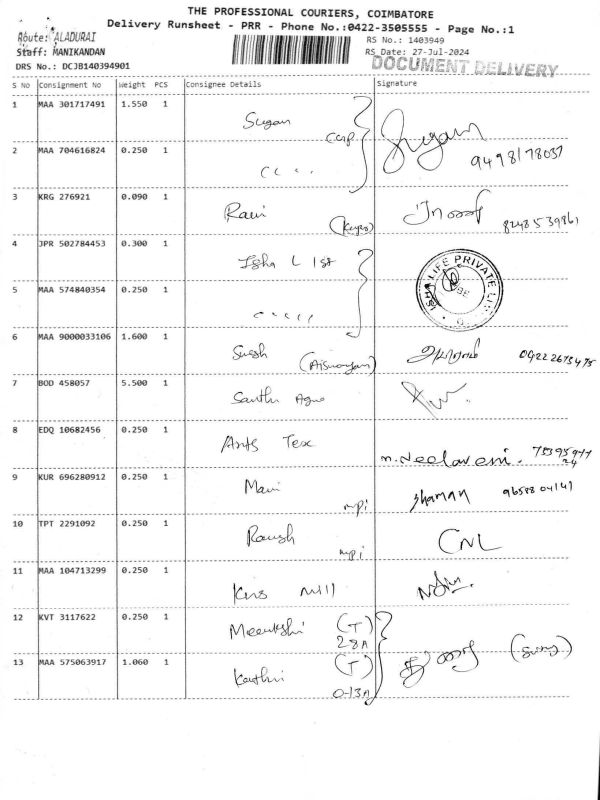 THE PROFESSIONAL COURIERS, COIMBATORE
Delivery Runsheet - PRR - Phone No.:0422-3505555 - Page No.:1
Route: ALADURAI
Staff: MANIKANDAN
DRS No.: DCJB140394901
RS No.: 1403949
RS Date: 27-Jul-2024
DOCUMENT DELIVERY
S No Consignment No Weight PCS Consignee Details Signature
1 MAA 301717491 1.550 1 Sugan
2 MAA 704616824 0.250 1 9498178037
3 KRG 276921 0.090 1 Ravi
4 JPR 502784453 0.300 1 Isha L Ist
ISHA LIFE PRIVATE LI
5 MAA 574840354 0.250 1
6 MAA 9000033106 1.600 1
7 BOD 458057 5.500 1 Santhi
8 EDQ 10682456 0.250 1 Ants Tex n. Neelaveni.
9 KUR 696280912 0.250 1 Mani mpi
10 TPT 2291092 0.250 1 mpi CNL
11 MAA 104713299 0.250 1 Mill
12 KVT 3117622 0.250 1 Meenkshi (T)
28A
13 MAA 575063917 1.060 1 (T)
0-13A